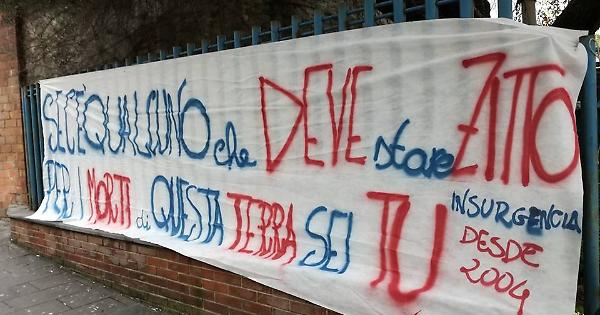 SE C'È QUALCUNO che DEVE stare ZITTO
PER I MORTI di QUESTA TERRA SEI TU
INSURGENCIA
DESDE
2004